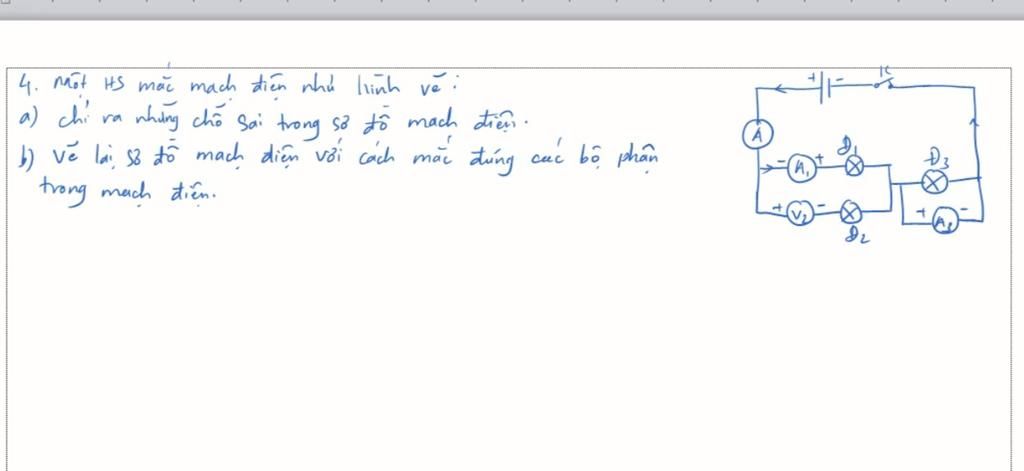 4. Một HS mắc mạch điện như hình vẽ:
a) chỉ ra những chỗ sai trong sơ đồ mạch điện.
b) vẽ lại sơ đồ mạch điện với cách mắc đúng các bộ phận
trong mạch điện.
+ - K
A
- A1 + Đ1
Đ3
+ V2 - Đ2
+ A3 -